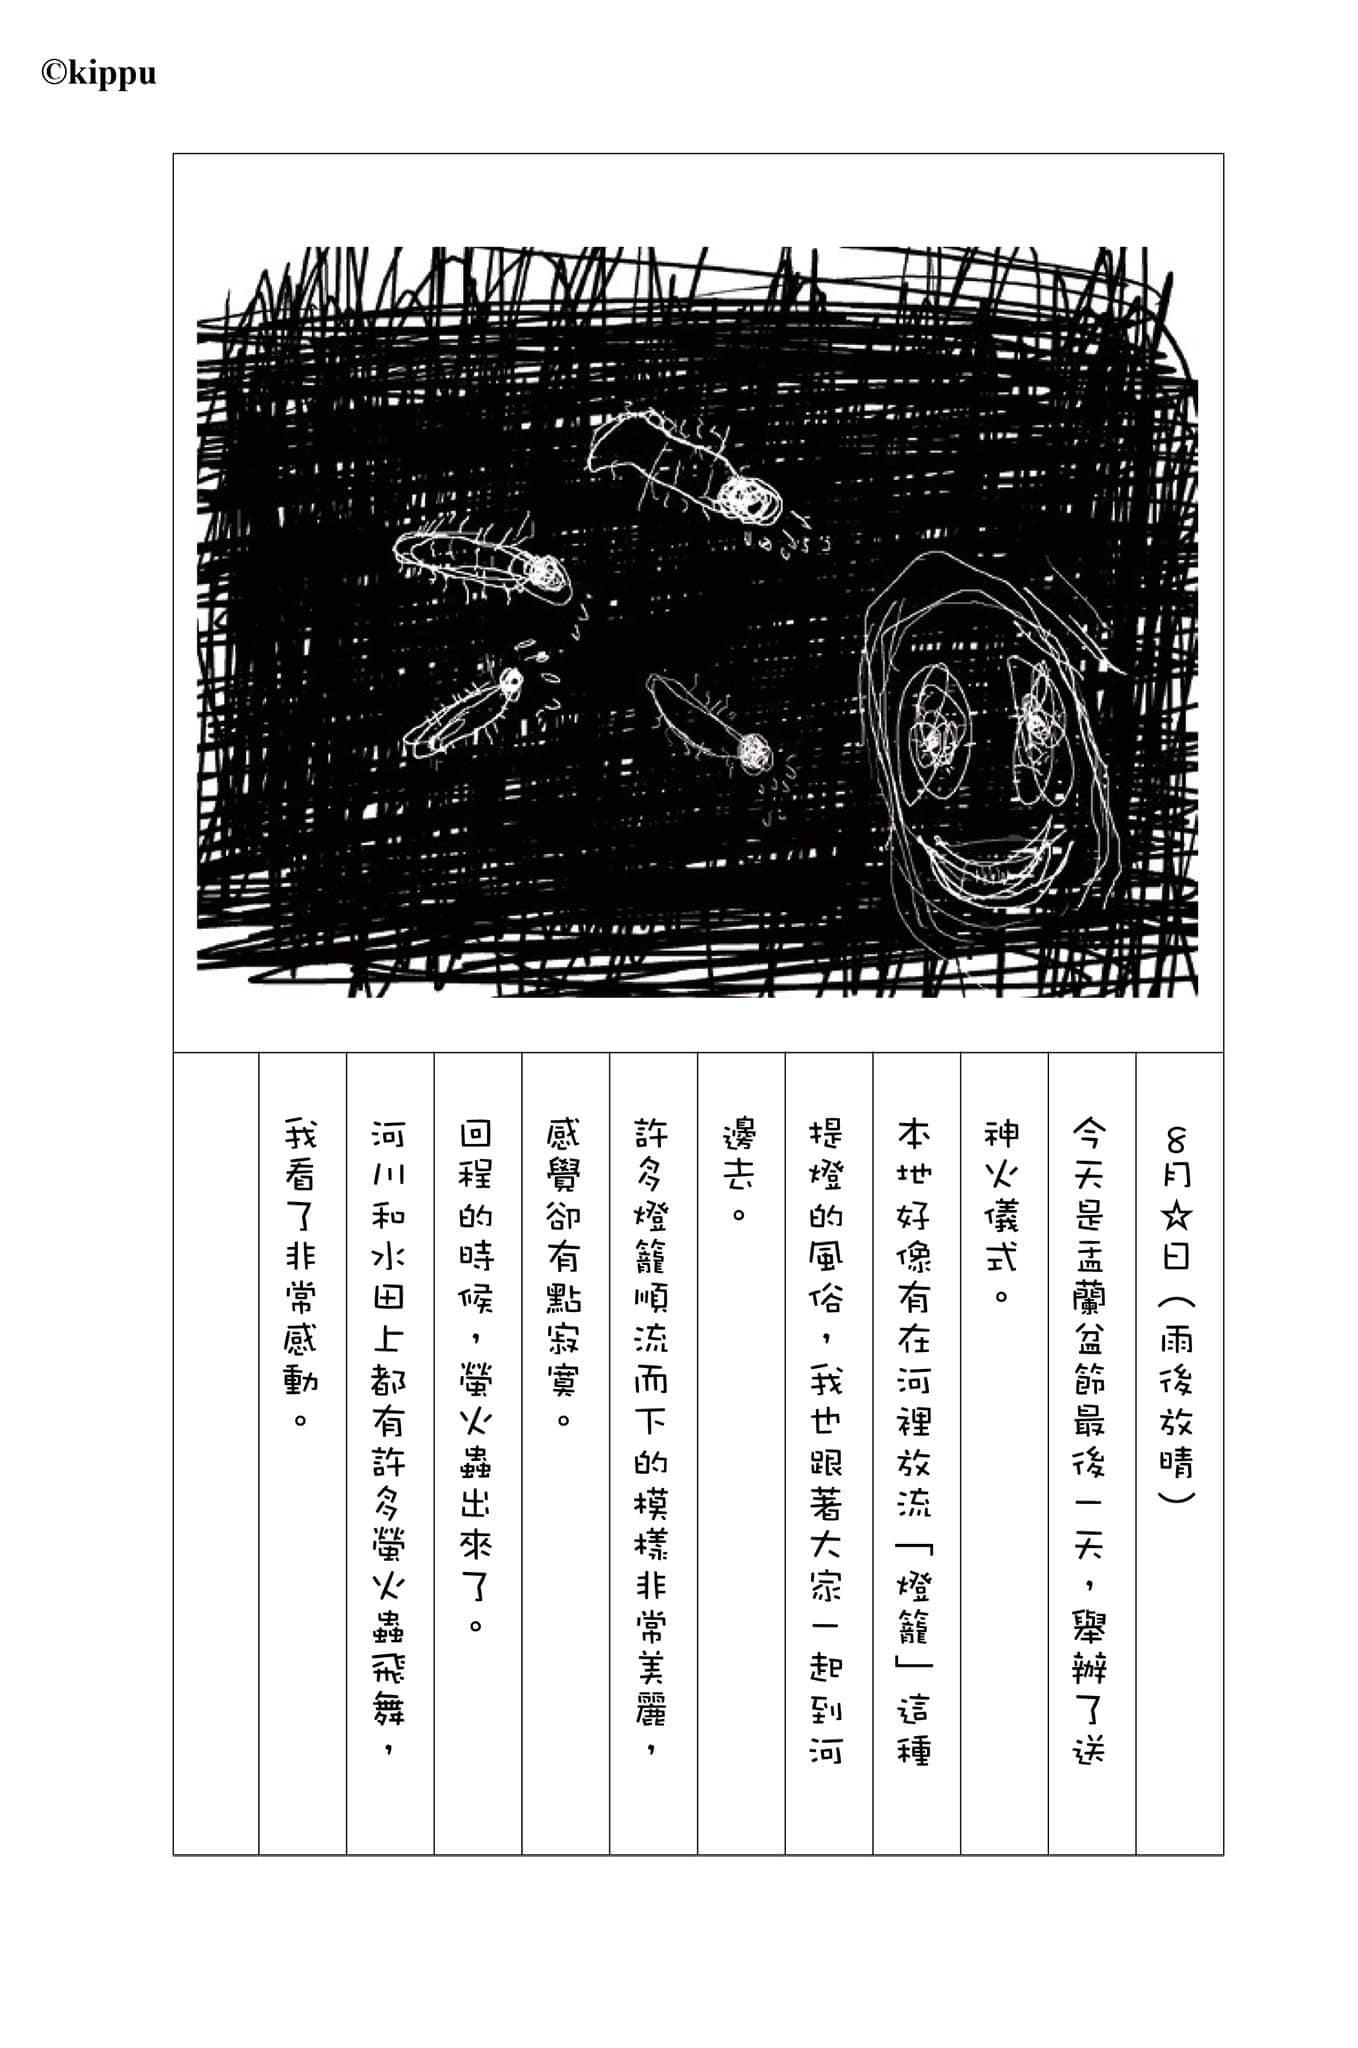 ©kippu
8月☆日（雨後放晴）
今天是盂蘭盆節最後一天，舉辦了送
神火儀式。
本地好像有在河裡放流「燈籠」這種
提燈的風俗，我也跟著大家一起到河
邊去。
許多燈籠順流而下的模樣非常美麗，
感覺卻有點寂寞。
回程的時候，螢火蟲出來了。
河川和水田上都有許多螢火蟲飛舞，
我看了非常感動。